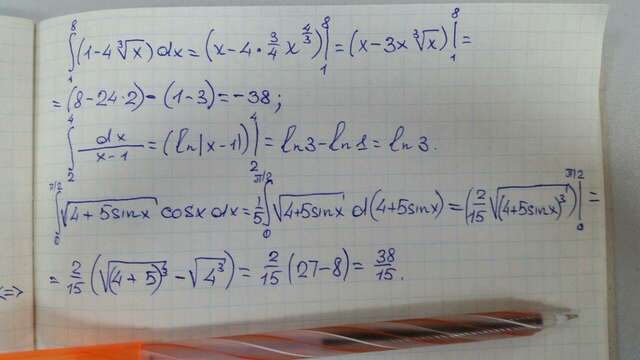 ∫₁⁸(1-4∛x)dx = (x-4·3/4 x^(4/3))|₁⁸ = (x-3x∛x)|₁⁸ =
= (8-24·2)-(1-3) = -38;
∫₂⁴ dx/(x-1) = (ln|x-1|)|₂⁴ = ln3-ln1 = ln3.
∫₀^(π/2) √(4+5sinx) cosx dx = 1/5 ∫₀^(π/2) √(4+5sinx) d(4+5sinx) = (2/15 √((4+5sinx)³))|₀^(π/2) =
<=> = 2/15 (√((4+5)³) - √(4³)) = 2/15 (27-8) = 38/15.